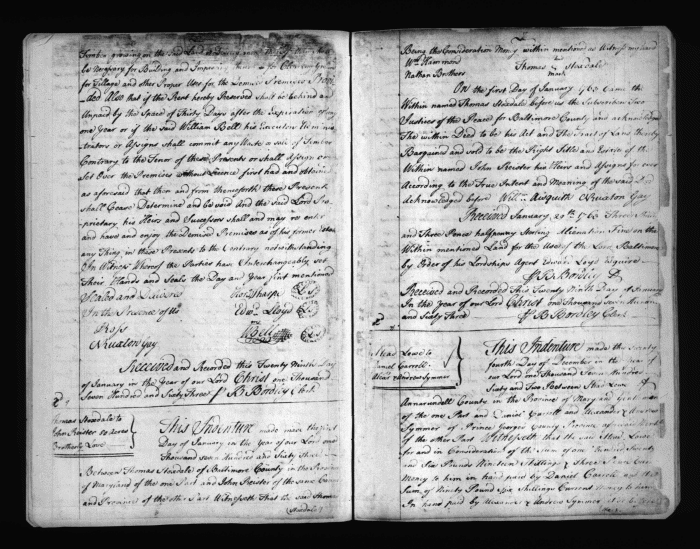 Timber growing on the said Land
be Necessary for Building and
for Tillage and other Proper Uses for the Demised Premises Provi
ded Also that if the Rent hereby Reserved shall be behind and
Unpaid by the Space of Thirty Days after the Expiration of any
one year or if the said William Bell his Executors Admini
trators or Assigns shall commit any Waste or sale of Timber
Contrary to the Tenor of these Presents or shall Assign or
let Over the Premisses without Licence first had and obtained
as aforesaid that then and from thenceforth these Presents
shall Cease Determine and be void And the said Lord Pro
prietary his Heirs and Successors shall and may re enter
and have and enjoy the Demised Premises as of his former Estate
any Thing in these Presents to the Contrary notwithstanding
In Witness Whereof the Parties have Interchangeably set
Their Hands and Seals the Day and Year first mentioned
Sealed and Delivered
Horo Sharpe
In the Presence of the
Edwd Lloyd
Ross
W Bell
Nruxton Gay
Received and Recorded this Twenty Ninth Day
of January in the Year of our Lord Christ one Thousand
Seven Hundred and Sixty Three B Bordley Clk
Thomas Stansdale to
John Reister 50 Acres
Brotherly Love
This Indenture made the first
Day of January in the Year of our Lord one
thousand seven hundred and Sixty Three
Between Thomas Stansdale of Baltimore County in the Province
of Maryland of the one Part and John Reister of the same County
and Province of the other Part Witnesseth That the said Thomas
Being the Consideration Money within mentioned as Witness my hand
Wm Hammond
Thomas Stansdale
Nathan Brothers
mark
On the first Day of January 1763 Came the
Within named Thomas Stansdale before us the Subscribers Two
Justices of the Peace for Baltimore County and acknowledged
The within Deed to be his Act and the Tract of Land thereby
Bargained and sold to be the Right Title and Estate of the
Within named John Reister his Heirs and Assigns for ever
According to the True Intent and Meaning of the said Deed
Acknowledged before Wm
Received January 29th 1763 Three
and Three Pence halfpenny Sterling Alienation Fine on the
Within mentioned Land for the Use of the Lord Baltimore
by Order of his Lordships Agent Edward Loyd Esquire
B Bordley
Received and Recorded This Twenty Ninth Day of January
In the Year of our Lord Christ one Thousand Seven Hundred
and Sixty Three
B Bordley Clerk
Lowe to
Daniel Carroll
This Indenture made the Twenty
fourth Day of December in the Year of
our Lord one Thousand Seven Hundred
Sixty and Two Between
Annarundell County in the Province of Maryland Gentleman
of the one Part and Daniel Carroll and Alexander & Andrew
Symmer of Prince Georges County Province aforesaid
of the other Part Witnesseth that the said Lowe
for and in Consideration of the Sum of one Hundred Twenty
and Six Pounds Nineteen Shillings & Three Pence
Money to him in hand paid by Daniel Carroll and the
Sum of Ninety Pound Six Shillings Current Money to him
In hand paid by Alexander & Andrew Symmer